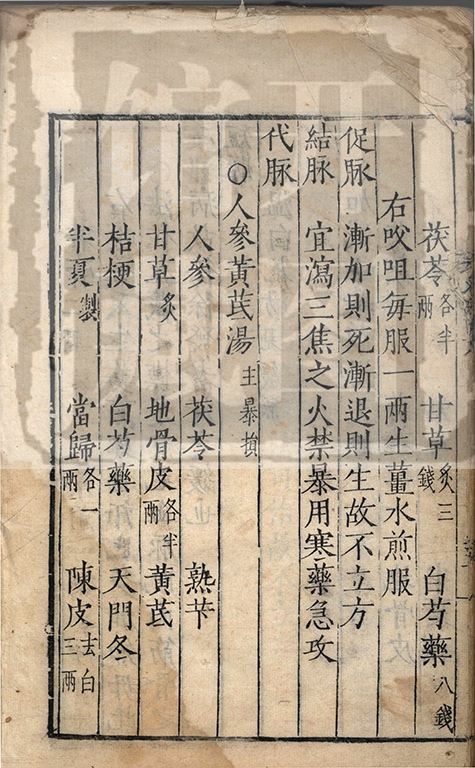 茯苓各半兩 甘草炙三錢 白芍藥八錢
右㕮咀每服一兩生薑水煎服
促脉 漸加則死漸退則生故不立方
結脉 宜瀉三焦之火禁暴用寒藥急攻
代脉
○人參黃芪湯主暴損
人參 茯苓 熟芐
甘草炙 地骨皮各半兩 黃芪
桔梗 白芍藥 天門冬
半夏製 當歸各一兩 陳皮去白三兩